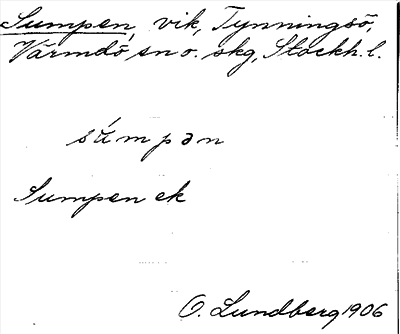 Sumpen, vik, Tynningsö,
Värmdö sn o. skg, Stockh. l.
súmpən
Sumpen ek
O. Lundberg 1906